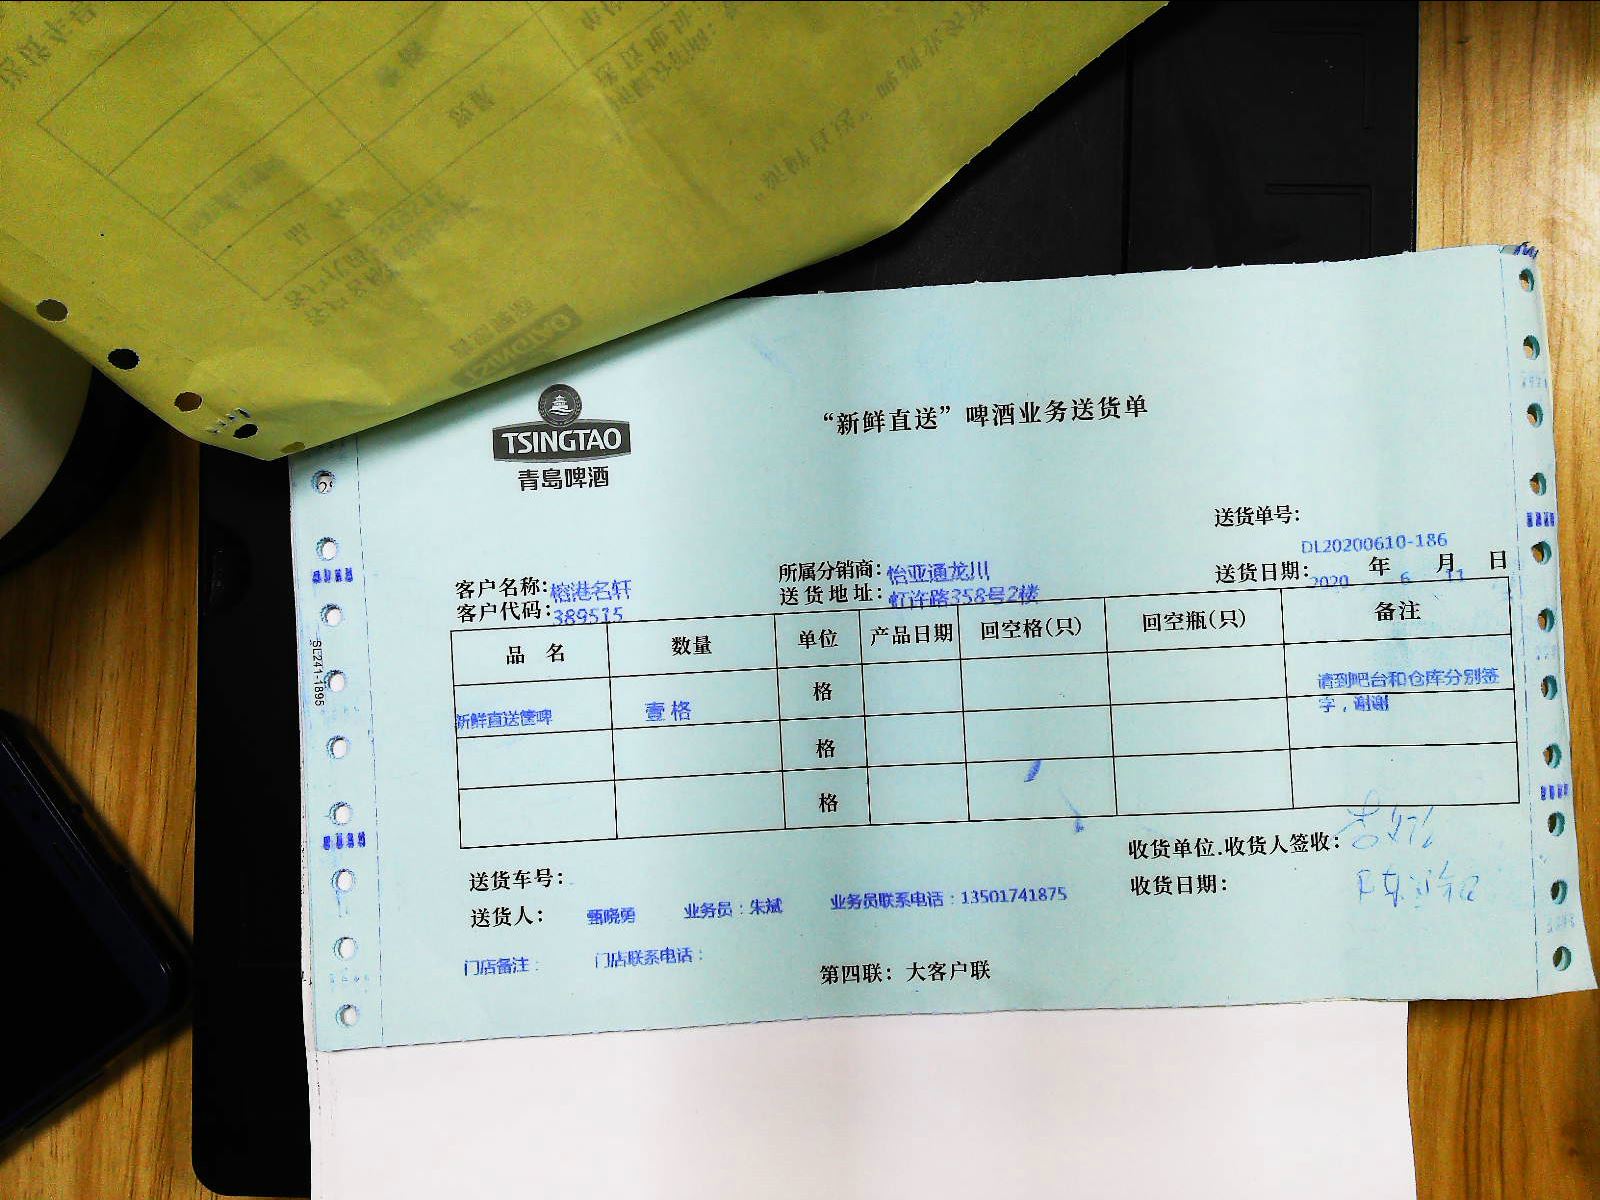 TSINGTAO
青岛啤酒
“新鲜直送”啤酒业务送货单
送货单号：
DL20200610-186
客户名称：榕港名轩
所属分销商：怡亚通龙川
送货日期：2020 年 6 月 11 日
客户代码：389515
送货地址：虹许路358号2楼
品名 数量 单位 产品日期 回空格(只) 回空瓶(只) 备注
新鲜直送筐啤 壹格 格 请到吧台和仓库分别签
字，谢谢
格
格
送货车号：
收货单位.收货人签收：
送货人： 甄晓勇 业务员：朱斌 业务员联系电话：13501741875
收货日期：
门店备注： 门店联系电话：
第四联：大客户联
SL241-1895